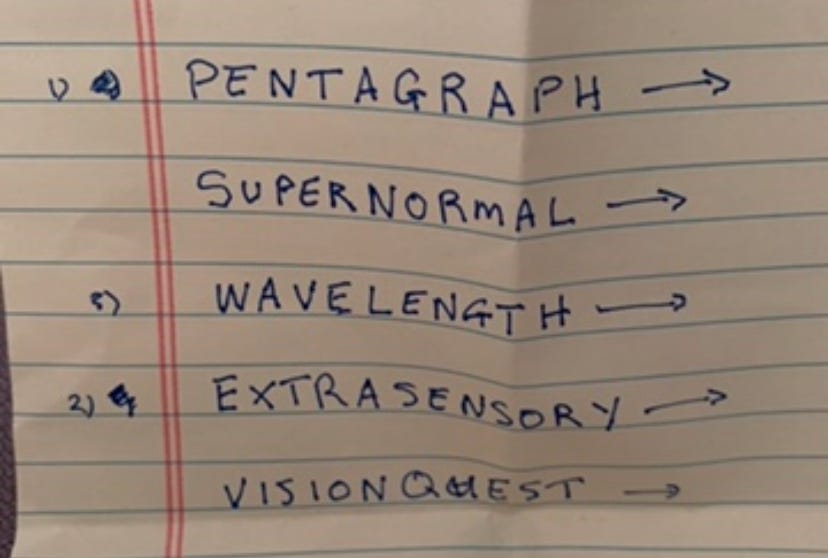 1) PENTAGRAPH →
SUPERNORMAL →
3) WAVELENGTH →
2) EXTRASENSORY →
VISIONQUEST →